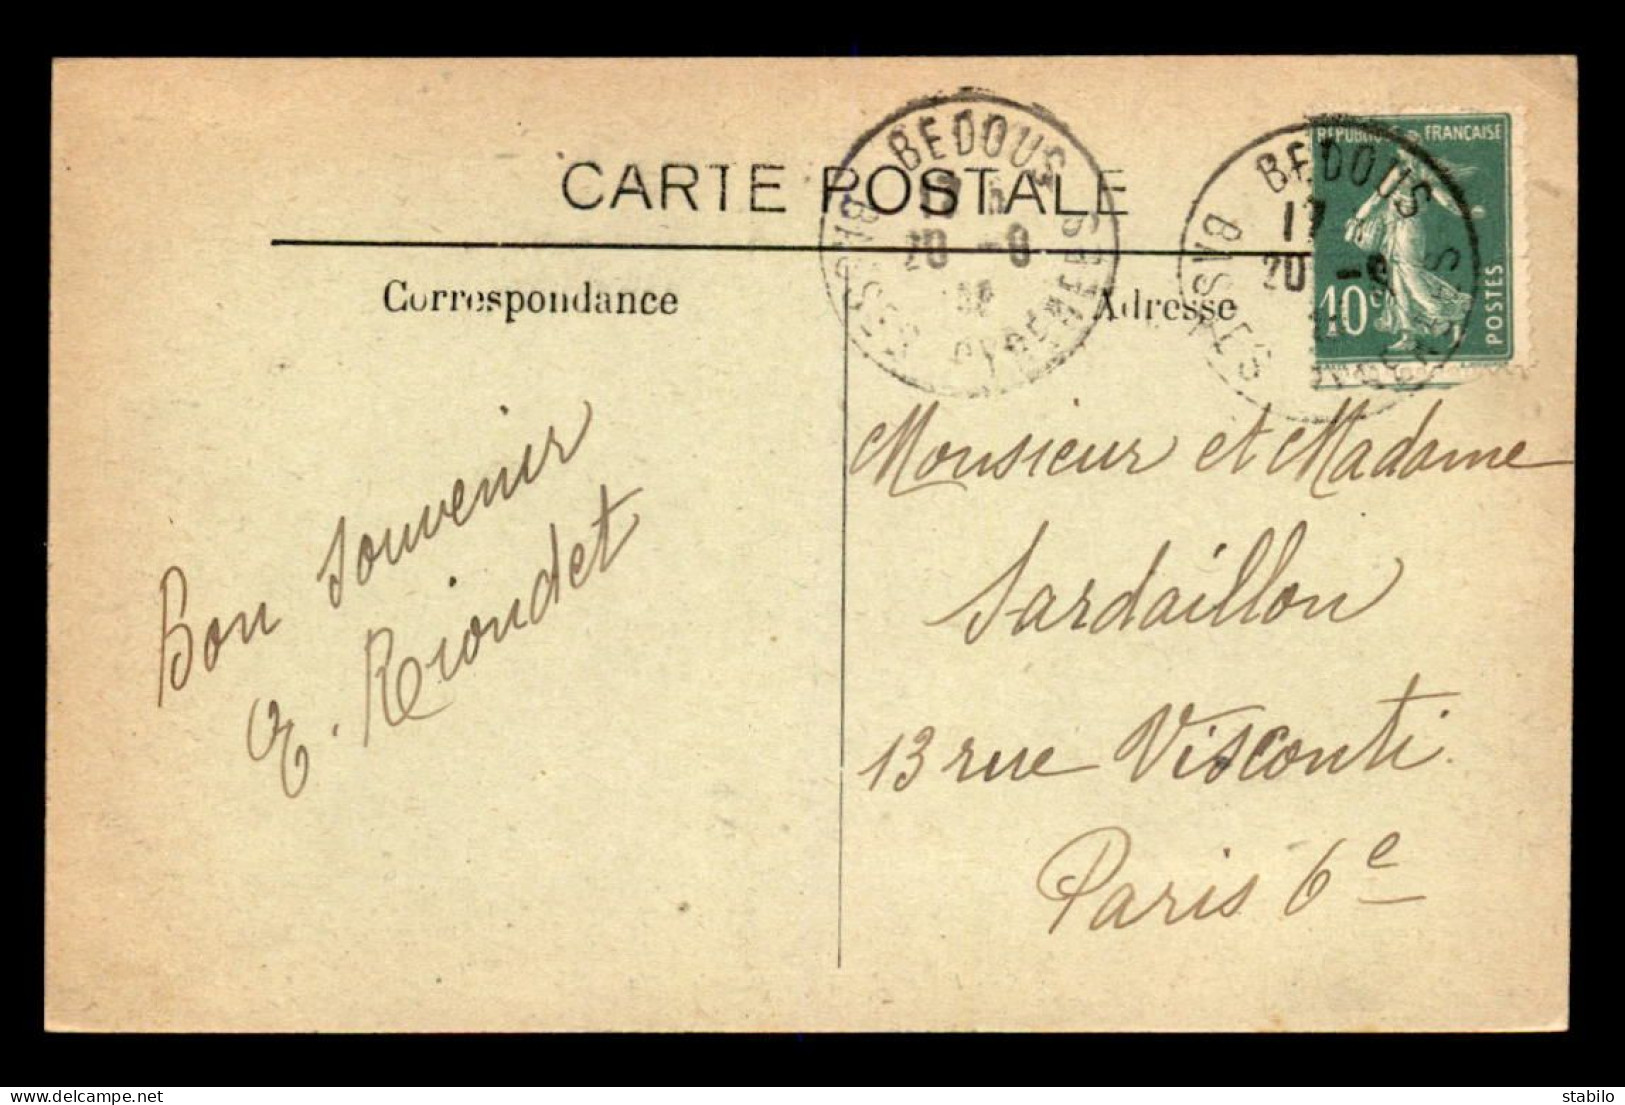 CARTE POSTALE
Correspondance
Adresse
BEDOUS
17
20 -9
BSSES PYRENEES
BEDOUS
17
20 -9
REPUBLIQUE FRANÇAISE
10c
POSTES
Bon Souvenir
E. Riondet
Monsieur et Madame
Sardaillon
13 rue Visconti
Paris 6e
stabilo
www.delcampe.net